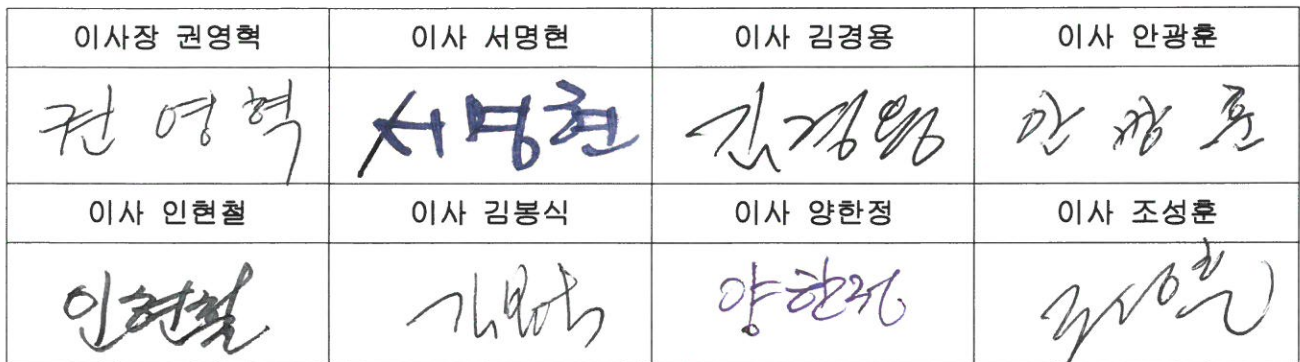 이사장 권영혁 이사 서명현 이사 김경용 이사 안광훈
권 영 혁 서명현 김경용 안광훈
이사 인현철 이사 김봉식 이사 양한정 이사 조성훈
인현철 김봉식 양한정 조성훈